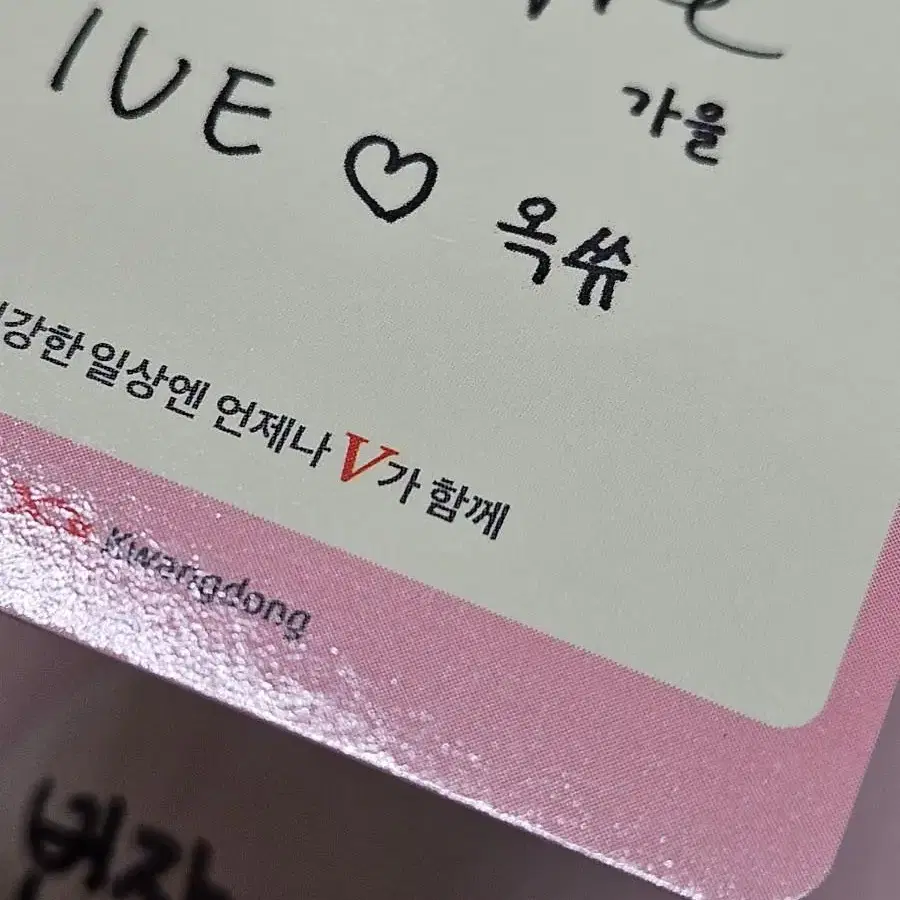 IVE ♡ 옥쓔
가을
강한 일상엔 언제나 V가 함께
Kwangdong